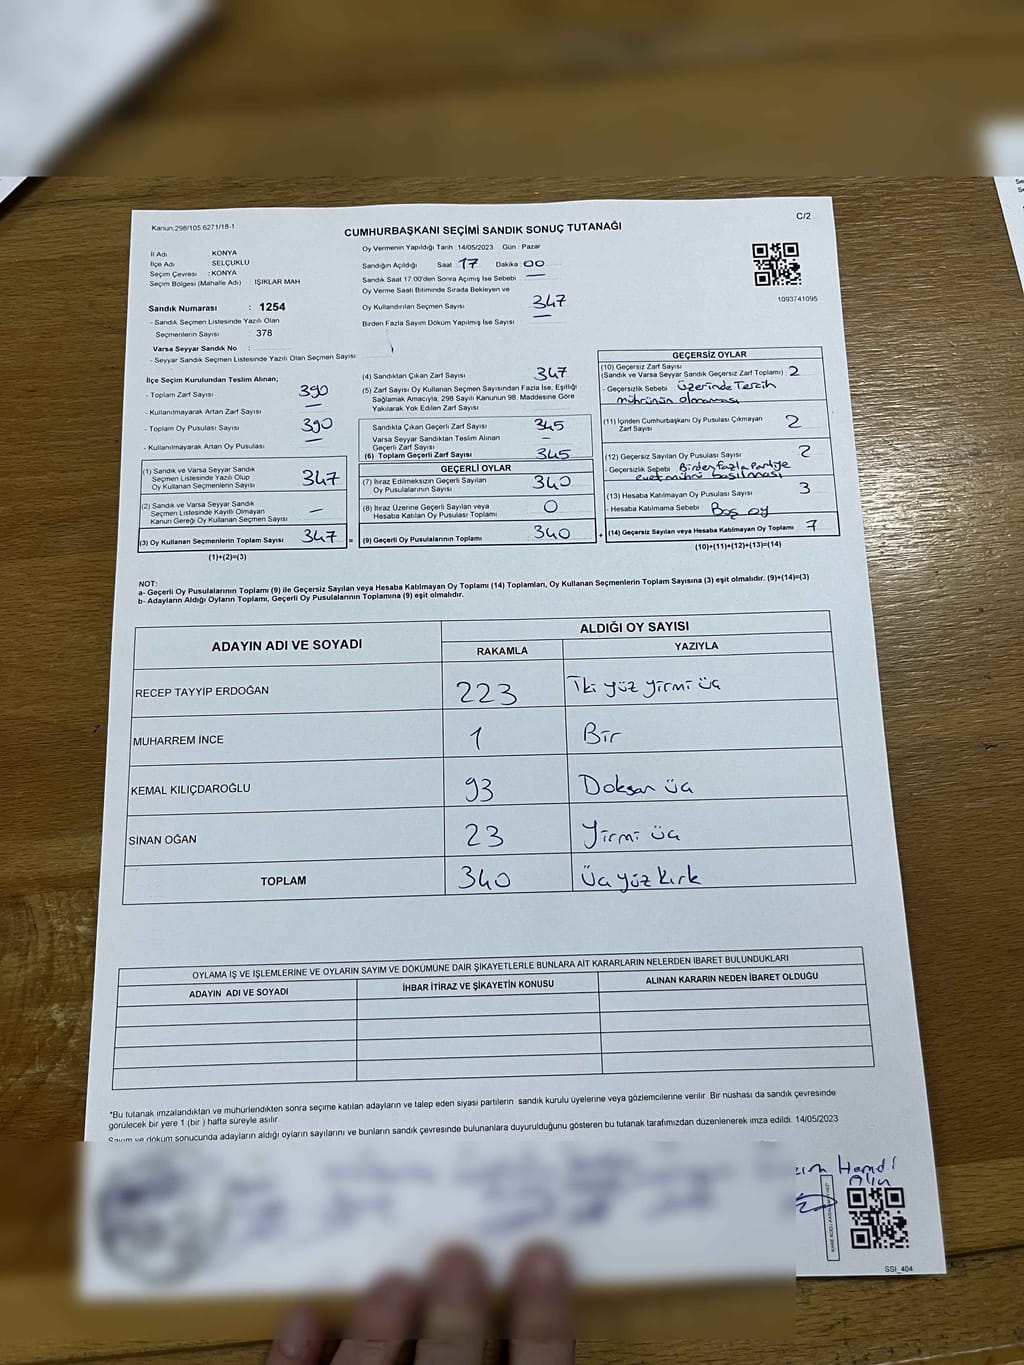 Kanun 298/105 6271/18-1
C/2
CUMHURBAŞKANI SEÇİMİ SANDIK SONUÇ TUTANAĞI
İl Adı KONYA
İlçe Adı SELÇUKLU
Seçim Çevresi : KONYA
Seçim Bölgesi (Mahalle Adı) IŞIKLAR MAH
Sandık Numarası : 1254
- Sandık Seçmen Listesinde Yazılı Olan
Seçmenlerin Sayısı : 378
Varsa Seyyar Sandık No :
- Seyyar Sandık Seçmen Listesinde Yazılı Olan Seçmen Sayısı
Oy Vermenin Yapıldığı Tarih : 14/05/2023 Gün : Pazar
Sandığın Açıldığı Saat 17 Dakika 00
Sandık Saat 17.00'den Sonra Açmış İse Sebebi —
Oy Verme Saati Bitiminde Sırada Bekleyen ve
Oy Kullandırılan Seçmen Sayısı 347
Birden Fazla Sayım Döküm Yapılmış İse Sayısı —
1093741095
İlçe Seçim Kurulundan Teslim Alınan;
- Toplam Zarf Sayısı 390
- Kullanılmayarak Artan Zarf Sayısı —
- Toplam Oy Pusulası Sayısı 390
- Kullanılmayarak Artan Oy Pusulası —
(1) Sandık ve Varsa Seyyar Sandık
Seçmen Listesinde Yazılı Olup
Oy Kullanan Seçmenlerin Sayısı 347
(2) Sandık ve Varsa Seyyar Sandık
Seçmen Listesinde Kayıtlı Olmayan
Kanun Gereği Oy Kullanan Seçmen Sayısı —
(3) Oy Kullanan Seçmenlerin Toplam Sayısı 347
(1)+(2)=(3)
(4) Sandıktan Çıkan Zarf Sayısı 347
(5) Zarf Sayısı Oy Kullanan Seçmen Sayısından Fazla İse, Eşitliği
Sağlamak Amacıyla, 298 Sayılı Kanunun 98. Maddesine Göre
Yakılarak Yok Edilen Zarf Sayısı
Sandıkta Çıkan Geçerli Zarf Sayısı 345
Varsa Seyyar Sandıktan Teslim Alınan
Geçerli Zarf Sayısı —
(6) Toplam Geçerli Zarf Sayısı 345
GEÇERLİ OYLAR
(7) İtiraz Edilmeksizin Geçerli Sayılan
Oy Pusulalarının Sayısı 340
(8) İtiraz Üzerine Geçerli Sayılan veya
Hesaba Katılan Oy Pusulası Toplamı 0
= (9) Geçerli Oy Pusulalarının Toplamı 340
GEÇERSİZ OYLAR
(10) Geçersiz Zarf Sayısı
(Sandık ve Varsa Seyyar Sandık Geçersiz Zarf Toplamı) 2
- Geçersizlik Sebebi Üzerinde Tercih
mührünün olmaması
(11) İçinden Cumhurbaşkanı Oy Pusulası Çıkmayan
Zarf Sayısı 2
(12) Geçersiz Sayılan Oy Pusulası Sayısı 2
- Geçersizlik Sebebi Birden fazla Partiye
evet mührü basılması
(13) Hesaba Katılmayan Oy Pusulası Sayısı 3
- Hesaba Katılmama Sebebi Boş oy
+ (14) Geçersiz Sayılan veya Hesaba Katılmayan Oy Toplamı 7
(10)+(11)+(12)+(13)=(14)
NOT:
a- Geçerli Oy Pusulalarının Toplamı (9) ile Geçersiz Sayılan veya Hesaba Katılmayan Oy Toplamı (14) Toplamları, Oy Kullanan Seçmenlerin Toplam Sayısına (3) eşit olmalıdır. (9)+(14)=(3)
b- Adayların Aldığı Oyların Toplamı, Geçerli Oy Pusulalarının Toplamına (9) eşit olmalıdır.
ADAYIN ADI VE SOYADI
ALDIĞI OY SAYISI
RAKAMLA YAZIYLA
RECEP TAYYİP ERDOĞAN 223 İki yüz yirmi üç
MUHARREM İNCE 1 Bir
KEMAL KILIÇDAROĞLU 93 Doksan üç
SİNAN OĞAN 23 Yirmi üç
TOPLAM 340 Üç yüz kırk
OYLAMA İŞ VE İŞLEMLERİNE VE OYLARIN SAYIM VE DÖKÜMÜNE DAİR ŞİKAYETLERLE BUNLARA AİT KARARLARIN NELERDEN İBARET BULUNDUKLARI
ADAYIN ADI VE SOYADI İHBAR İTİRAZ VE ŞİKAYETİN KONUSU ALINAN KARARIN NEDEN İBARET OLDUĞU
*Bu tutanak imzalandıktan ve mühürlendikten sonra seçime katılan adayların ve talep eden siyasi partilerin sandık kurulu üyelerine veya gözlemcilerine verilir. Bir nüshası da sandık çevresinde
görülecek bir yere 1 (bir ) hafta süreyle asılır
Sayım ve döküm sonucunda adayların aldığı oyların sayılarını ve bunların sandık çevresinde bulunanlara duyurulduğunu gösteren bu tutanak tarafımızdan düzenlenerek imza edildi. 14/05/2023
Hamdi
SSI_404